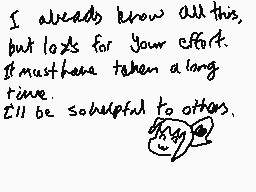 I already know all this,
but lots for your effort.
It must have taken a long
time.
It'll be so helpful to others.